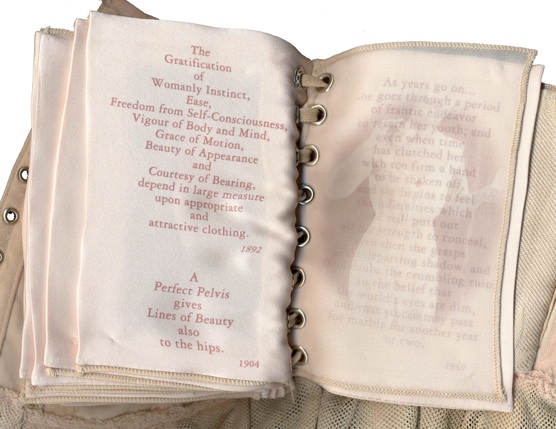 The
Gratification
of
Womanly Instinct,
Ease,
Freedom from Self-Consciousness,
Vigour of Body and Mind,
Grace of Motion,
Beauty of Appearance
and
Courtesy of Bearing,
depend in large measure
upon appropriate
and
attractive clothing.
1892
A
Perfect Pelvis
gives
Lines of Beauty
also
to the hips.
1904
As years go on...
she goes through a period
of frantic endeavor
to record her youth; and
even when time
has clutched her
with too firm a hand
to be shaken off,
begins to feel
which
out
strength to conceal,
even then she grasps
departing shadow, and
the crumbling ruin
in the belief that
world's eyes are dim,
and that stucco may pass
for marble for another year
or two.